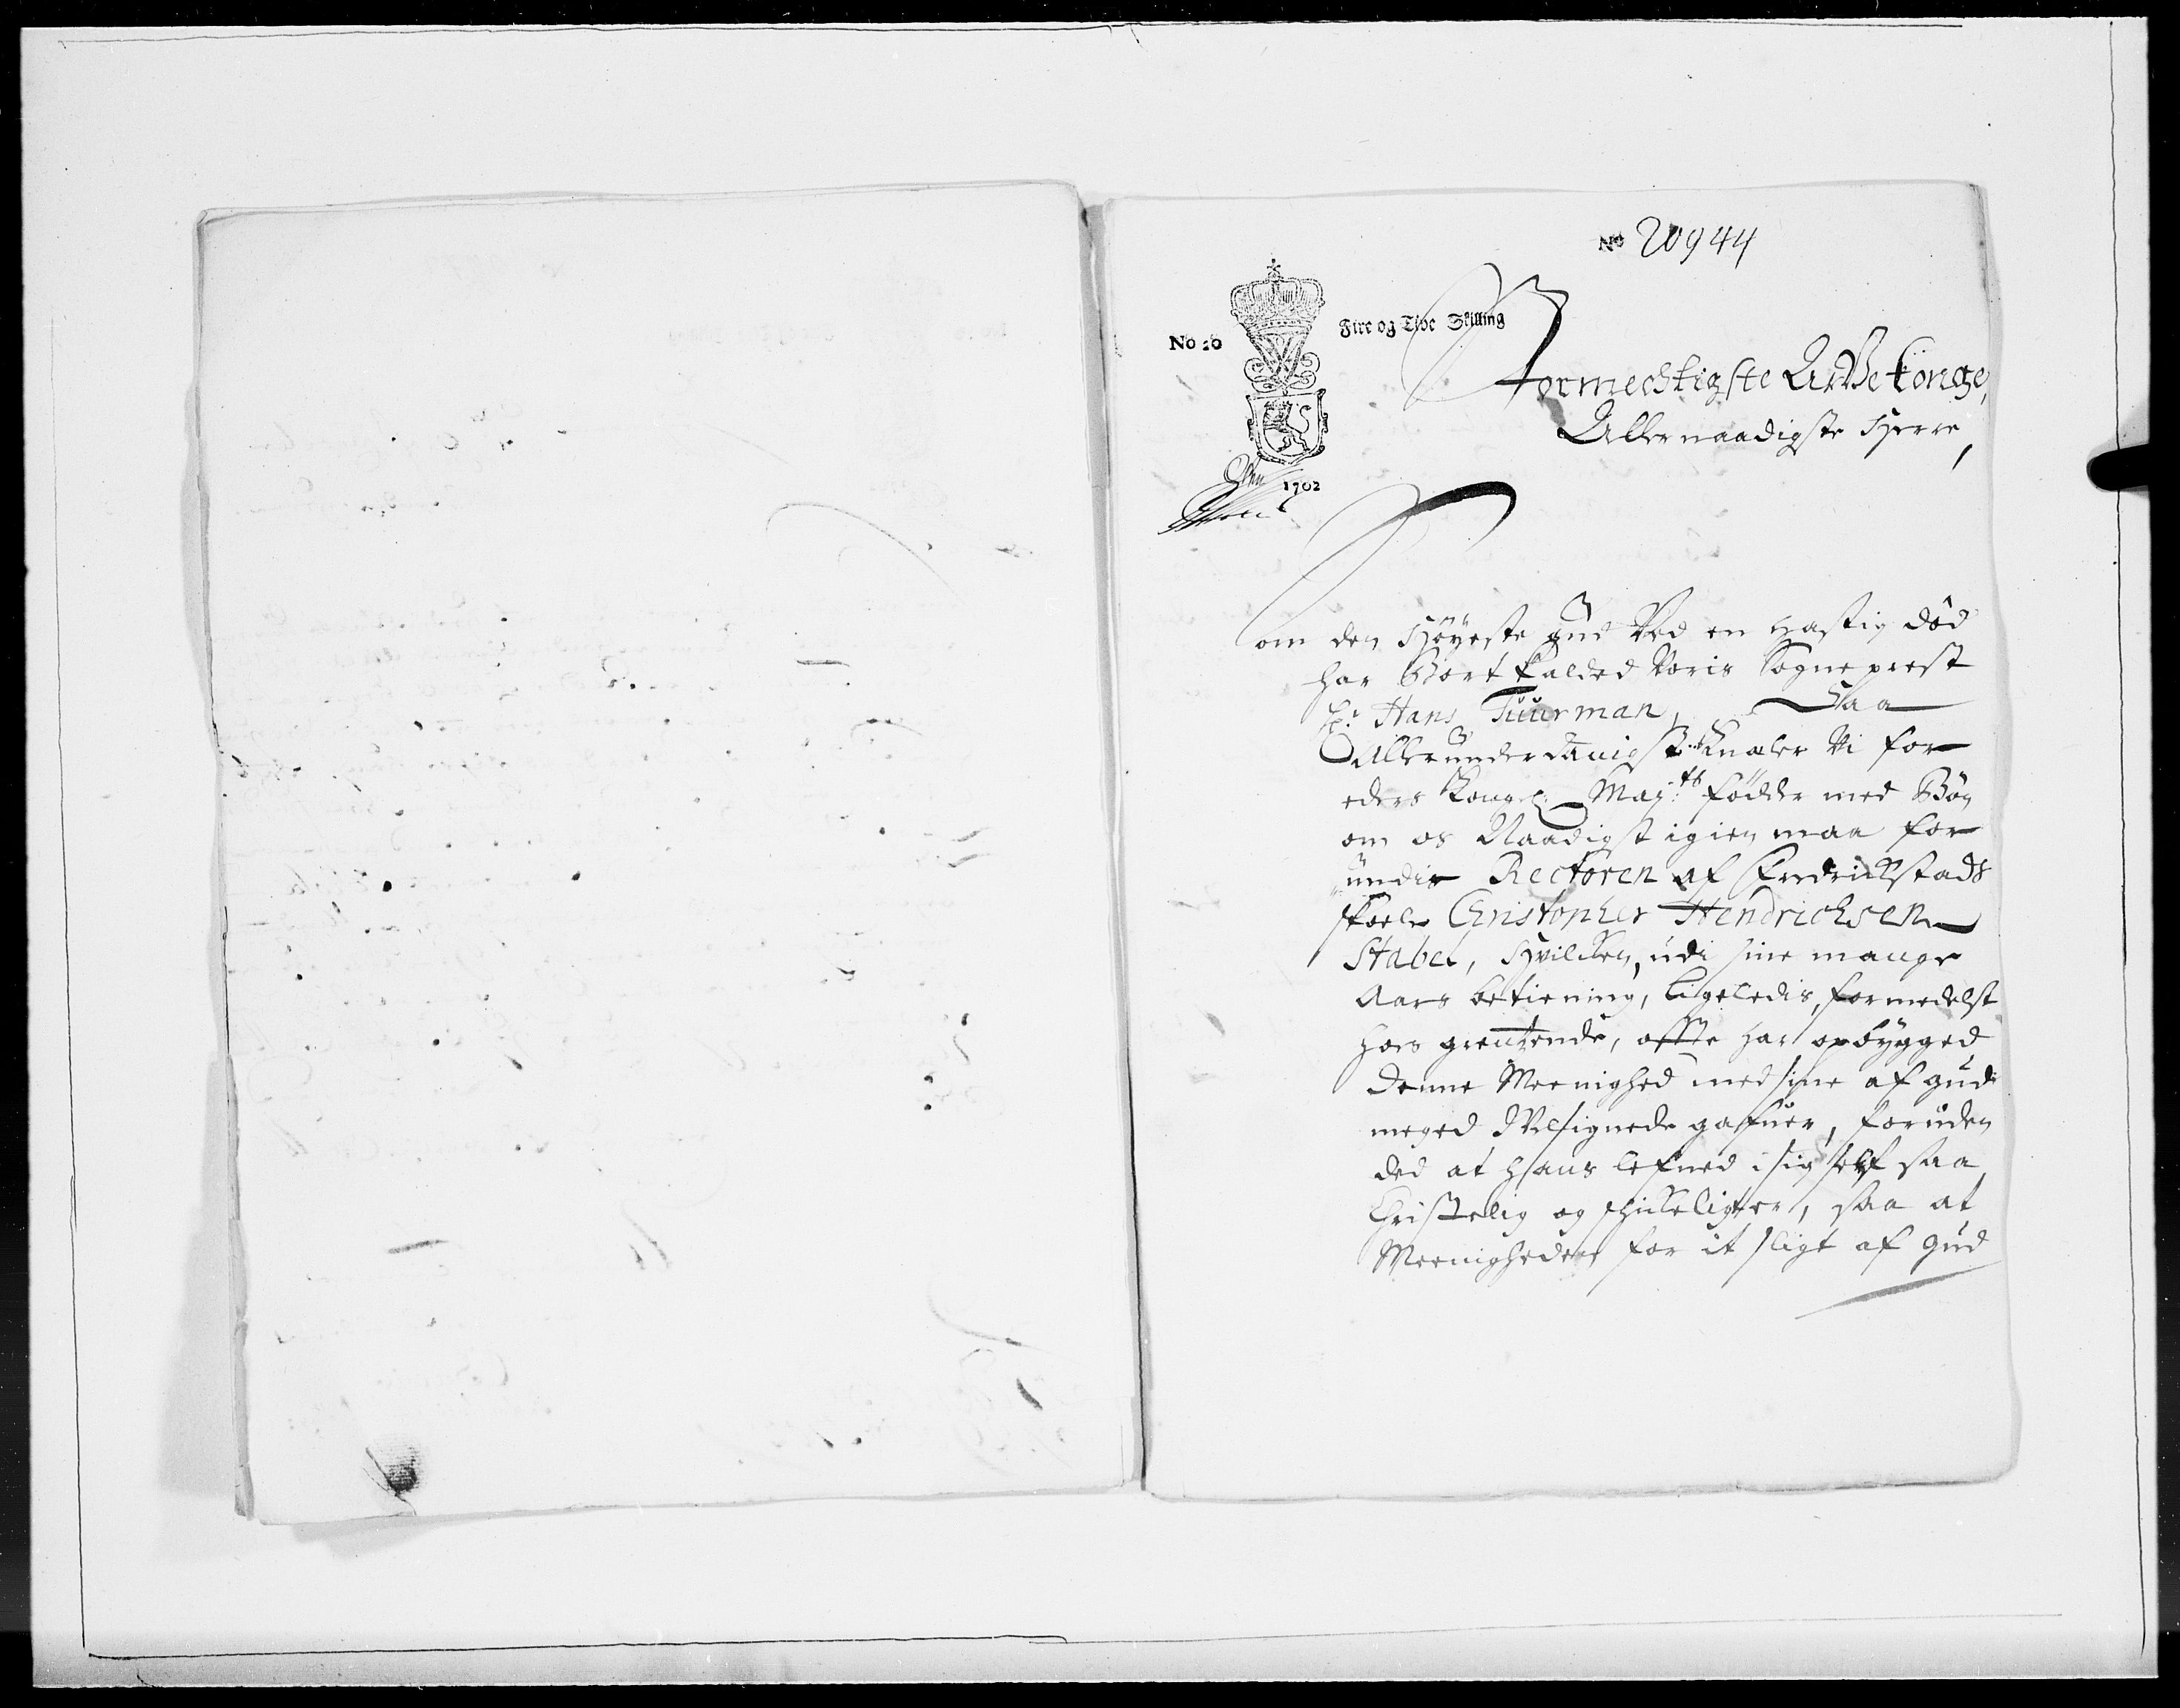 No 20944
No 20
Fire og Tive Skilling
Stormechtigste Arfve Konge,
Allernaadigste Herre,
1702
Som den Høyeste Gud Ved en hastig død
har Bortkalded Voris Sogneprest
Hr Hans Tuurman, Saa
Allerunderdanigst Knæler Vi for
eders Kongl: Maj:ts fødder med Bøn
om os Naadigst igien maa for
undis Rectoren af Fredrichstads
skoele Christopher Hendrichsen
Stabel, Hvilcken, udi sine mange
Aars betiening, ligeledis, formedelst
hos grentzende, offte har opbygged
denne Meenighed med sine af gud
meged Velsignede gafuer, foruden
ded at hans lefned i sig self saa
Christelig og schickelig er, saa at
Meenigheden for it sligt af Gud